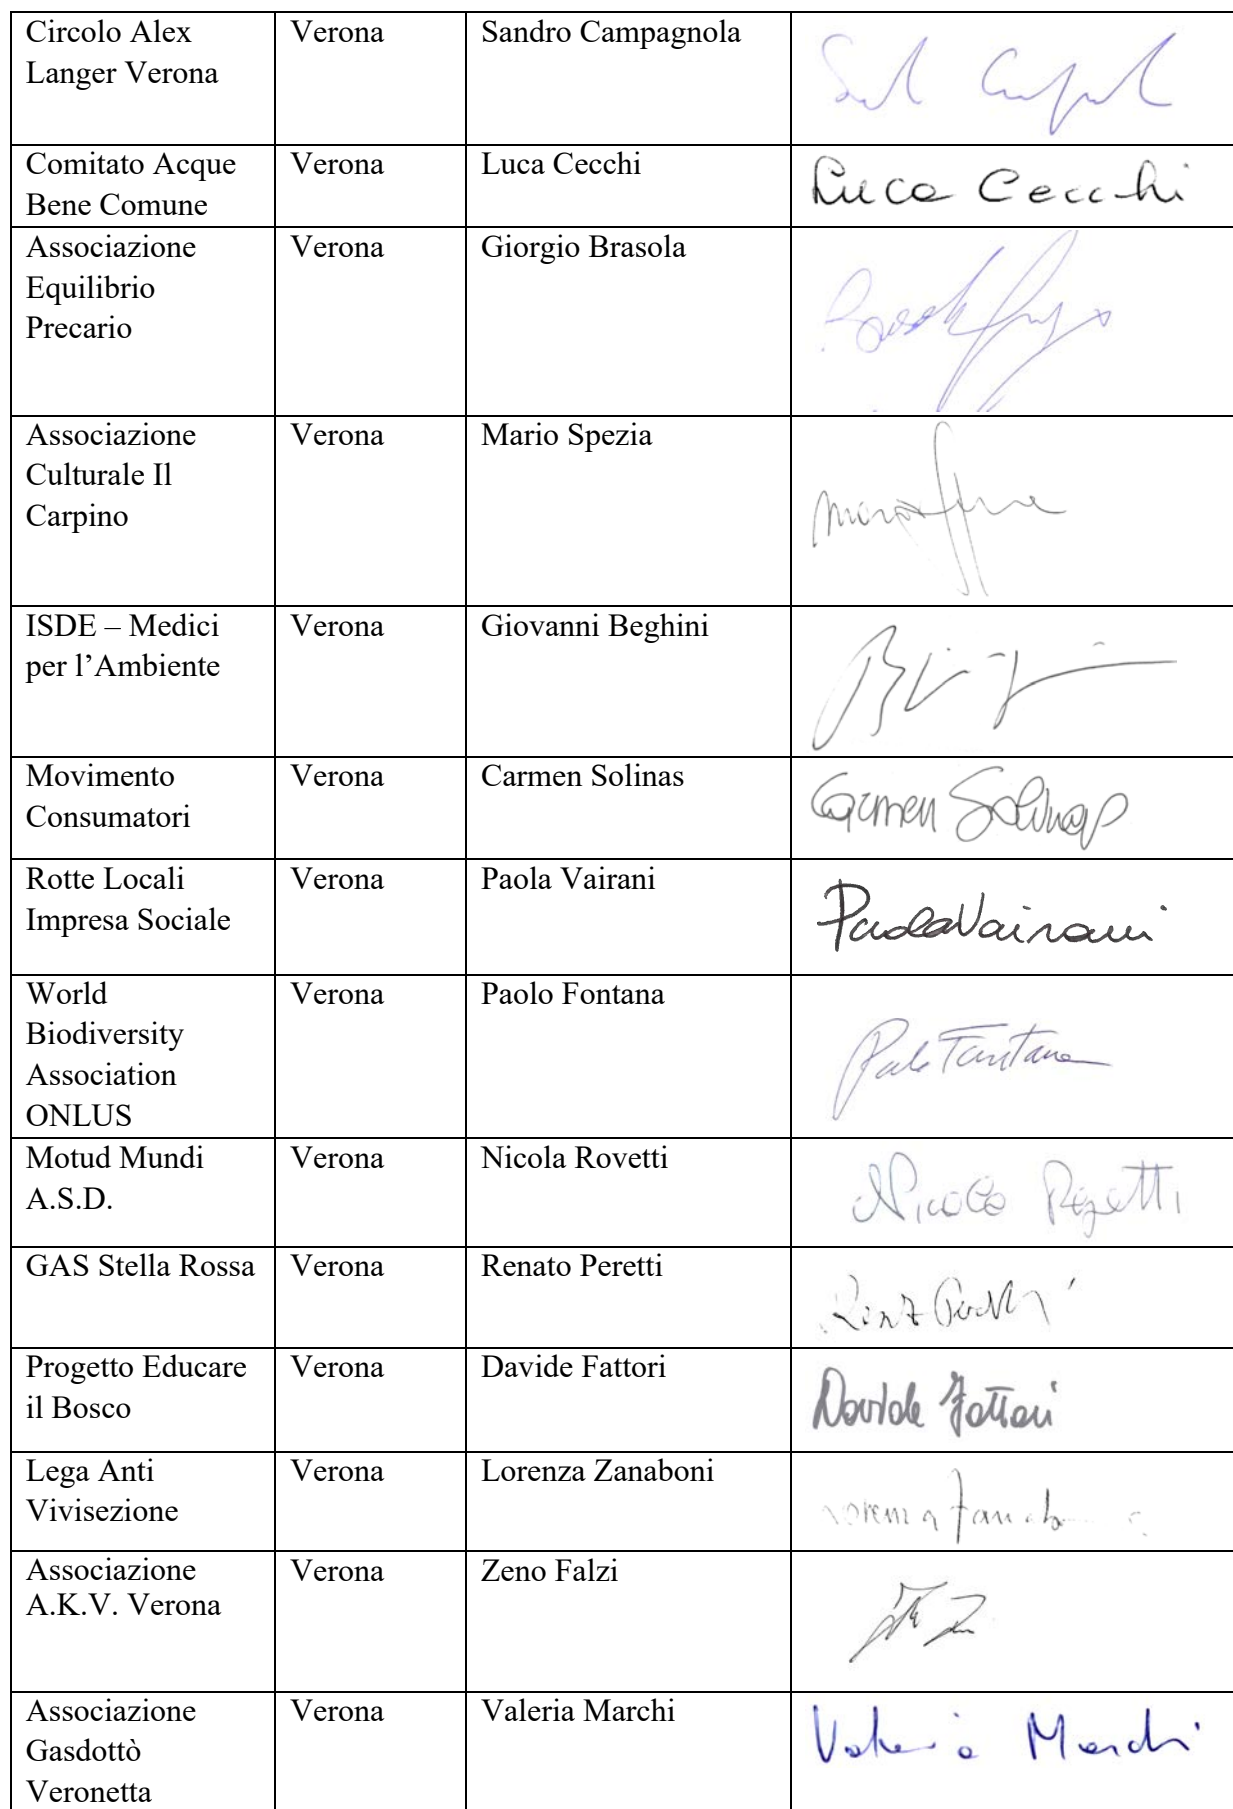 Circolo Alex
Langer Verona
Verona
Sandro Campagnola
Comitato Acque
Bene Comune
Verona
Luca Cecchi
Luca Cecchi
Associazione
Equilibrio
Precario
Verona
Giorgio Brasola
Associazione
Culturale Il
Carpino
Verona
Mario Spezia
ISDE – Medici
per l’Ambiente
Verona
Giovanni Beghini
Movimento
Consumatori
Verona
Carmen Solinas
Carmen Solinas
Rotte Locali
Impresa Sociale
Verona
Paola Vairani
Paola Vairani
World
Biodiversity
Association
ONLUS
Verona
Paolo Fontana
Paolo Fontana
Motud Mundi
A.S.D.
Verona
Nicola Rovetti
Nicola
GAS Stella Rossa
Verona
Renato Peretti
Progetto Educare
il Bosco
Verona
Davide Fattori
Davide Fattori
Lega Anti
Vivisezione
Verona
Lorenza Zanaboni
Associazione
A.K.V. Verona
Verona
Zeno Falzi
Associazione
Gasdottò
Veronetta
Verona
Valeria Marchi
Valeria Marchi